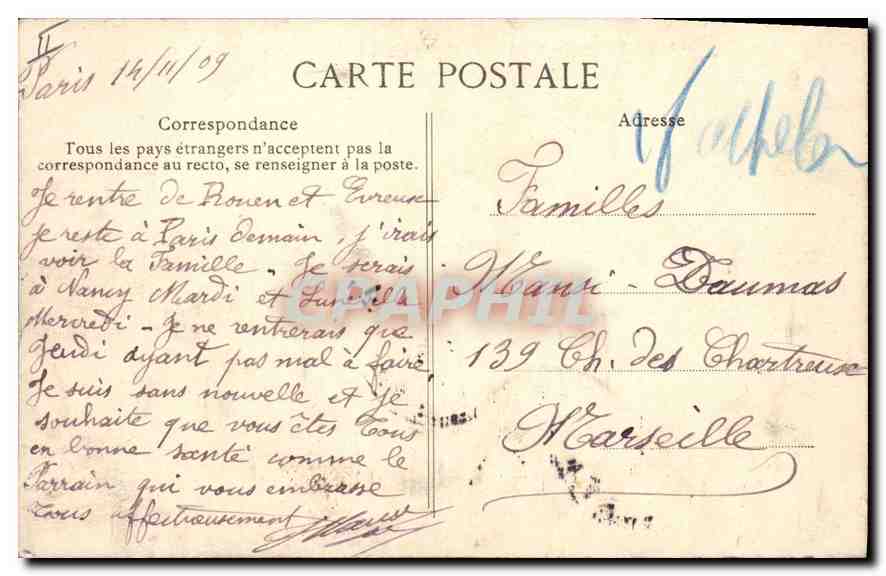 II
Paris 14/11/09
CARTE POSTALE
Correspondance
Tous les pays étrangers n'acceptent pas la
correspondance au recto, se renseigner à la poste.
Je rentre de Rouen et Evreuse
je reste à Paris demain, j'irais
voir la Famille. Je serais
à Nancy Mardi et
Mercredi - Je ne rentrerais que
Jeudi ayant pas mal à faire
Je suis sans nouvelle et je
souhaite que vous êtes Tous
en bonne santé comme le
Parrain qui vous embrasse
Tous affectueusement
Adresse
Familles
Mansi - Daumas
139 Ch. des Chartreuse
Marseille
CPAPHIL